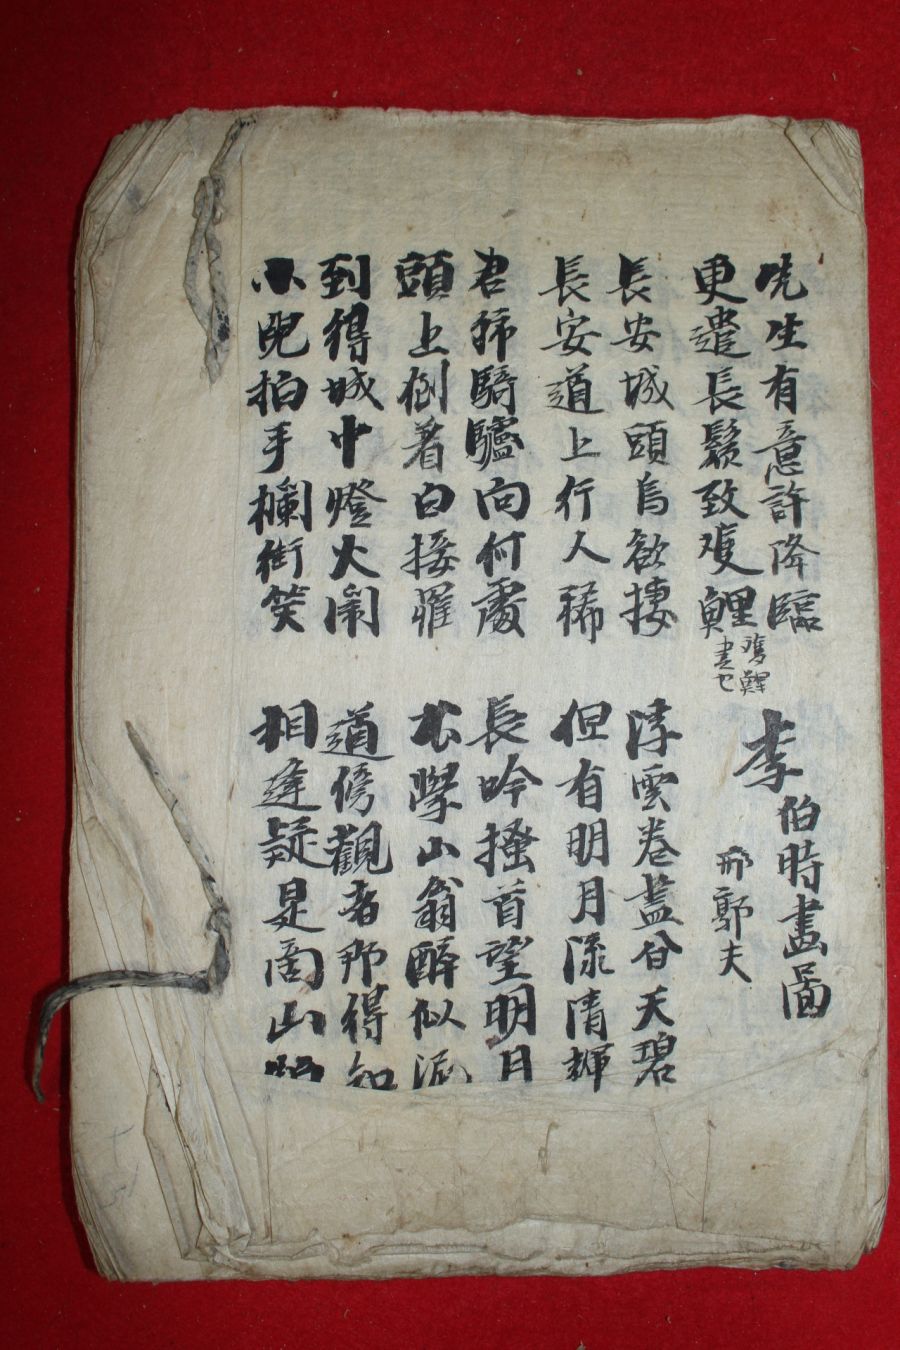 先生有意許降臨
更遣長鬚致雙鯉
雙鯉
書也
李伯時畫圖
邢郭夫
長安城頭烏欲捿 浮雲卷蓋天碧
長安道上行人稀 但有明月流清輝
君歸騎驢向何處 長吟搔首望明月
頭上倒着白接罹 不學山翁醉似泥
到得城中燈火鬧 道傍觀者那得知
小兒拍手欄街笑 相逢疑是商山